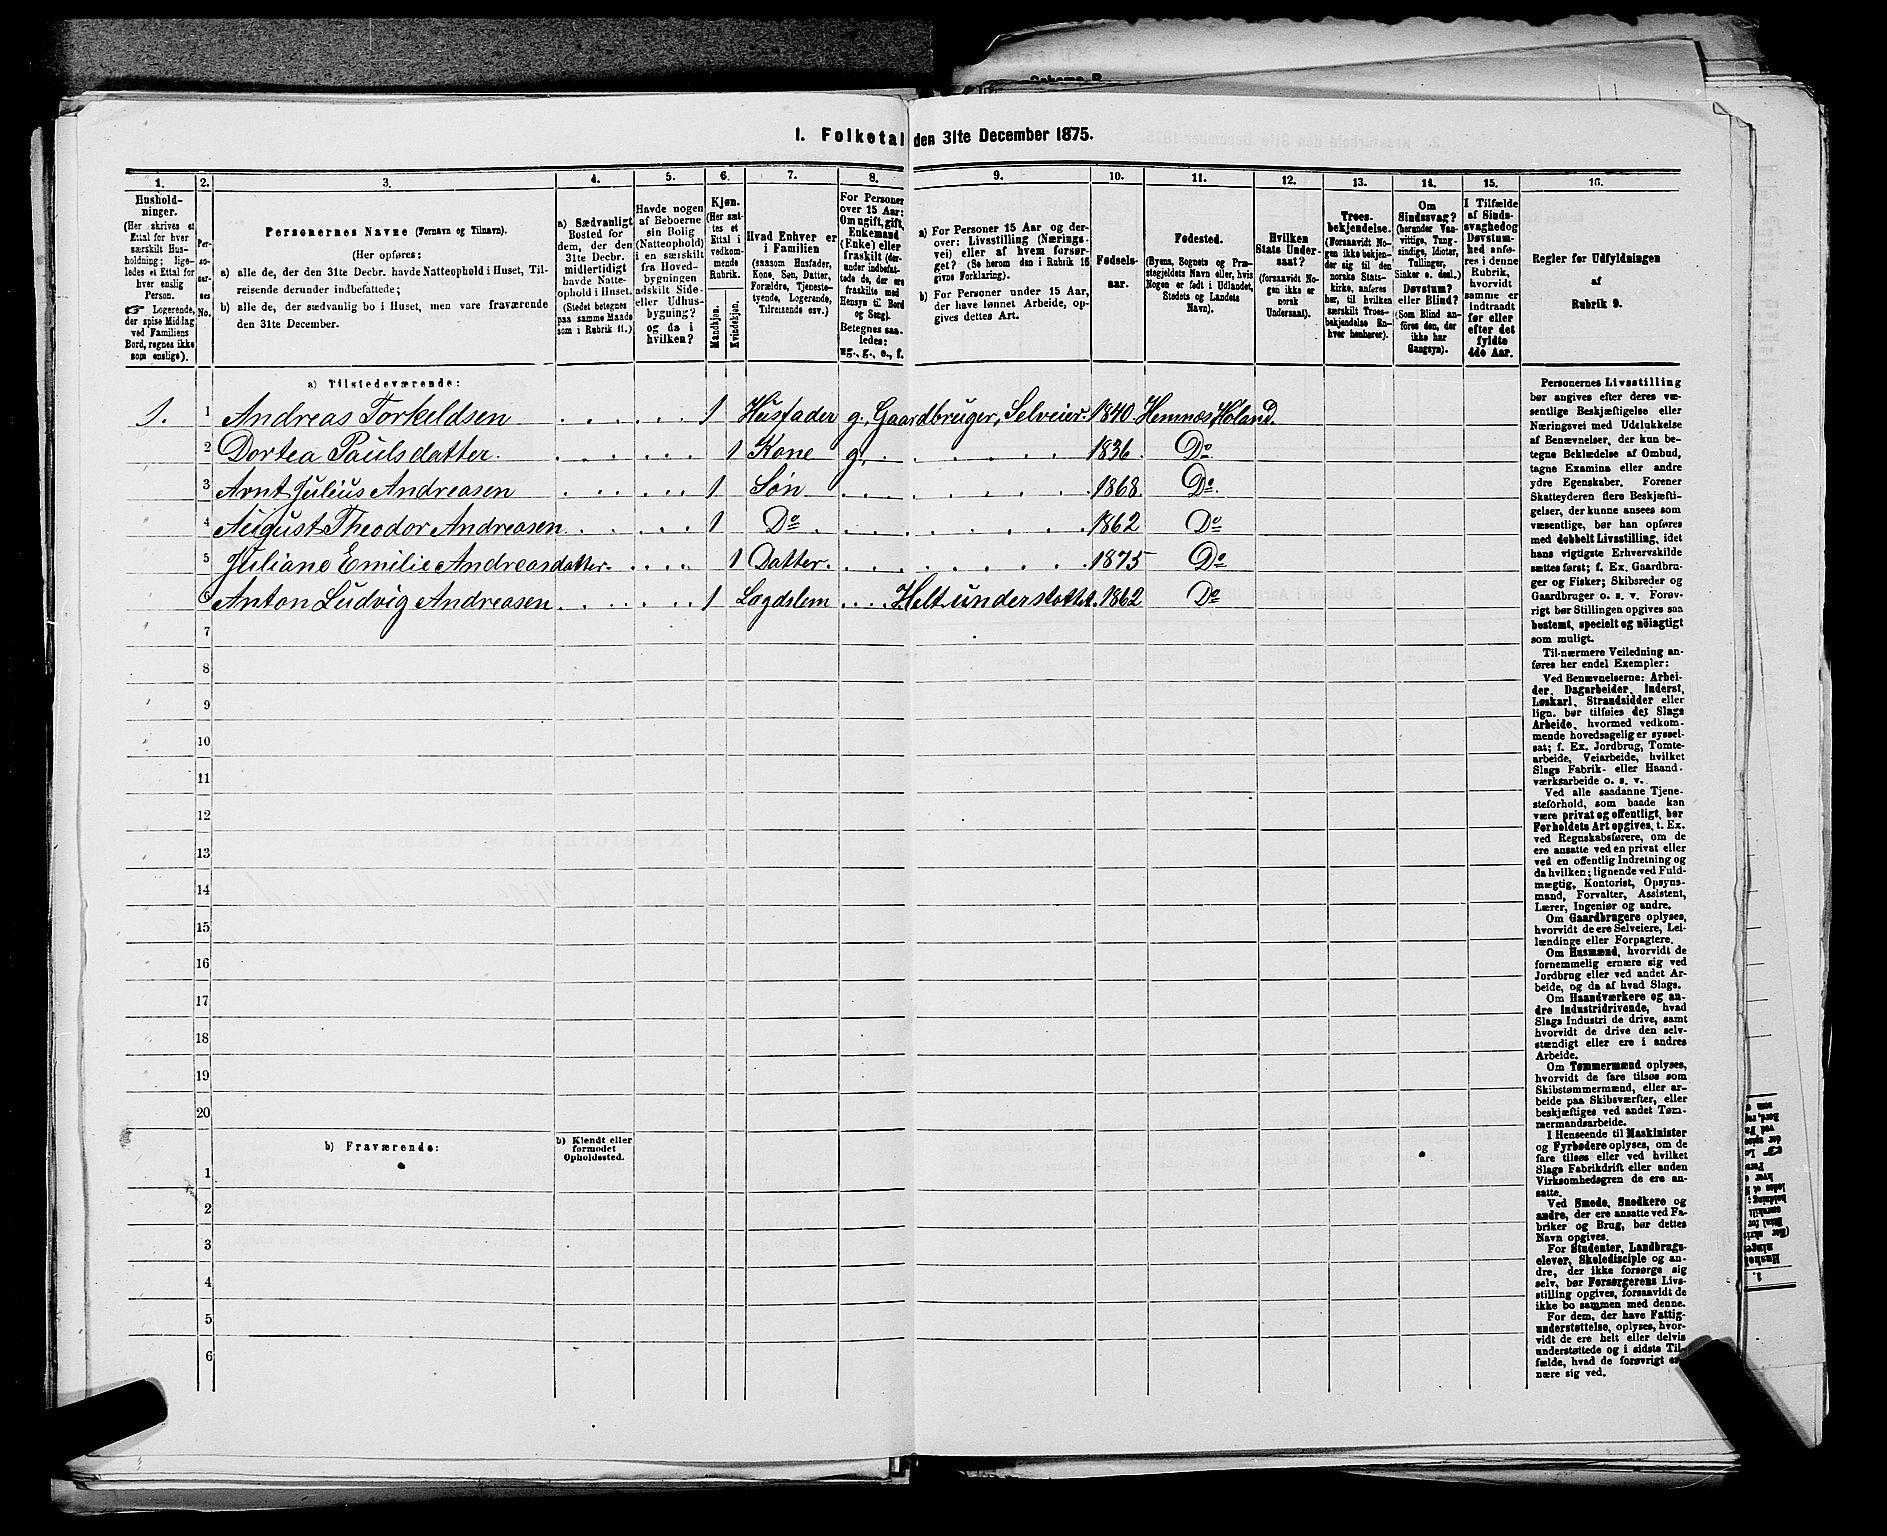 1. Folketal den 31te December 1875.
1. 2. 3. 4. 5. 6. 7. 8. 9. 10. 11. 12. 13. 14. 15. 16.
Hushold-
ninger.
(Her skrives et
Ettal for hver
særskilt Hus-
holdning; lige-
ledes et Ettal for
hver enslig
Person.
☞ Logerende,
der spise Middag
ved Familiens
Bord, regnes ikke
som enslige).
Per-
so-
ner-
nes
No.
Personernes Navne (Fornavn og Tilnavn).
(Her opføres:
a) alle de, der den 31te Decbr. havde Natteophold i Huset, Til-
reisende derunder indbefattede;
b) alle de, der sædvanlig bo i Huset, men vare fraværende
den 31te December.
a) Sædvanligt
Bosted for
dem, der den
31te Decbr.
midlertidigt
havde Natte-
ophold i Huset.
(Stedet betegnes
paa samme Maade
som i Rubrik 11.)
Havde nogen
af Beboerne
sin Bolig
(Natteophold)
i en særskilt
fra Hoved-
bygningen
adskilt Side-
eller Udhus-
bygning?
og da i
hvilken?
Kjøn.
(Her sæt-
tes et
Ettal i
vedkom-
mende
Rubrik.
Mandkjøn.
Kvindekjøn.
Hvad Enhver er
i Familien
(saasom Husfader,
Kone, Søn, Datter,
Forældre, Tjeneste-
tyende, Logerende,
Tilreisende osv.)
For Personer
over 15 Aar:
Om ugift, gift,
Enkemand
(Enke) eller
fraskilt (der-
under indbefat-
tede de, der ere
fraskilte med
Hensyn til Bord
og Seng).
Betegnes saa-
ledes:
ug., g., e., f.
a) For Personer 15 Aar og der-
over: Livsstilling (Nærings-
vei) eller af hvem forsør-
get? (Se herom den i Rubrik 16
givne Forklaring).
b) For Personer under 15 Aar,
der have lønnet Arbeide, op-
gives dettes Art.
Fødsels-
aar.
Fødested.
(Byens, Sognets og Præ-
stegjeldets Navn eller, hvis
Nogen er født i Udlandet,
Stedets og Landets
Navn).
Hvilken
Stats Under-
saat?
(forsaavidt No-
gen ikke er
norsk
Undersaat).
Troes-
bekjendelse.
(Forsaavidt No-
gen ikke bekjen-
der sig til den
norske Stats-
kirke, anføres
her, til hvilken
særskilt Troes-
bekjendelse En-
hver henhører).
Om
Sindssvag?
(herunder Van-
vittige, Tung-
sindige, Idioter,
Tullinger,
Sinker o. desl.)
Døvstum?
eller Blind?
(Som Blind an-
føres den, der
ikke har
Gangsyn).
I Tilfælde
af Sinds-
svaghed og
Døvstum-
hed anfø-
res i denne
Rubrik,
hvorvidt
samme er
indtraadt
før eller
efter det
fyldte
4de Aar.
Regler for Udfyldningen
af
Rubrik 9.
a) Tilstedeværende:
1. 1 Andreas Torkeldsen 1 Husfader g. Gaardbruger, Selveier. 1840 Hemnæs Høland.
2 Dortea Paulsdatter. 1 Kone g. 1836 Do
3 Arnt Julius Andreasen 1 Søn 1868 Do.
4 August Theodor Andreasen 1 Do 1862 Do
5 Juliane Emilie Andreasdatter. 1 Datter 1875 Do
6 Anton Ludvig Andreasen 1 Lægdslem Helt understøttet. 1862 Do
7
8
9
10
11
12
13
14
15
16
17
18
19
20
b) Fraværende:
b) Kjendt eller
formodet
Opholdssted.
1
2
3
4
5
6
Personernes Livsstilling
bør angives efter deres væ-
sentlige Beskjæftigelse eller
Næringsvei med Udelukkelse
af Benævnelser, der kun be-
tegne Beklædelse af Ombud,
tagne Examina eller andre
ydre Egenskaber. Forener
Skatteyderen flere Beskjæfti-
gelser, der kunne ansees som
væsentlige, bør han opføres
med dobbelt Livsstilling, idet
hans vigtigste Erhvervskilde
sættes først; f. Ex. Gaardbru-
ger og Fisker; Skibsreder og
Gaardbruger o. s. v. Forøv-
rigt bør Stillingen opgives saa
bestemt, specielt og nøiagtigt
som muligt.
Til nærmere Veiledning an-
føres her endel Exempler:
Ved Benævnelserne: Arbei-
der, Dagarbeider, Inderst,
Løskarl, Strandsidder eller
lign. bør tilføies det Slags
Arbeide, hvormed vedkom-
mende hovedsagelig er syssel-
sat; f. Ex. Jordbrug, Tomte-
arbeide, Veiarbeide, hvilket
Slags Fabrik- eller Haand-
værksarbeide o. s. v.
Ved alle saadanne Tjene-
steforhold, som baade kan
være privat og offentligt, bør
Forholdets Art opgives, t. Ex.
ved Regnskabsførere, om de
ere ansatte ved en privat eller
ved en offentlig Indretning og
da hvilken; lignende ved Fuld-
mægtig, Kontorist, Opsyns-
mand, Forvalter, Assistent,
Lærer, Ingeniør og andre.
Om Gaardbrugere oplyses,
hvorvidt de ere Selveiere, Lei-
lændinge eller Forpagtere.
Om Husmænd, hvorvidt de
fornemmelig ernære sig ved
Jordbrug eller ved andet Ar-
beide, og da af hvad Slags.
Om Haandværkere og an-
dre Industridrivende, hvad
Slags Industri de drive, samt
hvorvidt de drive den selv-
stændigt eller ere i andres
Arbeide.
Om Tømmermænd oplyses,
hvorvidt de fare tilsøs som
Skibstømmermænd, eller ar-
beide paa Skibsværfter, eller
beskjæftiges ved andet Tøm-
mermandsarbeide.
I Henseende til Maskinister
og Fyrbødere oplyses, om de
fare tilsøs eller ved hvilket
Slags Fabrikdrift eller anden
Virksomhedsgren de ere an-
satte.
Ved Smede, Snedkere og
andre, der ere ansatte ved Fa-
briker og Brug, bør dettes
Navn opgives.
For Studenter, Landbrugs-
elever, Skoledisciple og an-
dre, der ikke forsørge sig
selv, bør Forsørgerens Livs-
stilling opgives, forsaavidt de
ikke bo sammen med denne.
For dem, der have Fattig-
understøttelse, oplyses, hvor-
vidt de ere helt eller delvis
understøttede og i sidste Til-
fælde, hvad de forøvrigt er-
nære sig ved.